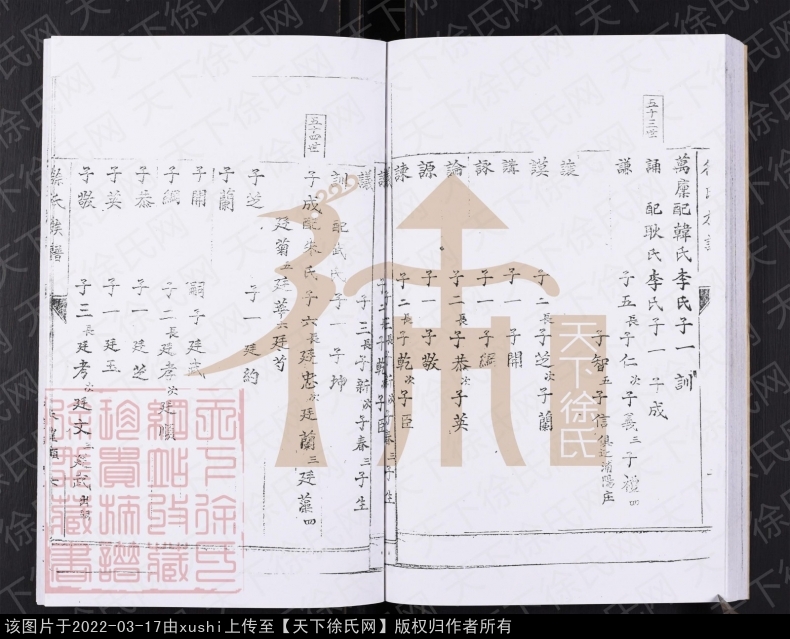 五十三世
萬廩配韓氏李氏子一 訓
誦 配耿氏李氏子一 子成
謙 子五長子仁次子義三子禮四
子智五子信
謨 子二長子芝次子蘭
講 子一 子開
詠 子一 子綱
論 子二長子恭次子英
源 子一 子敬
諫 子二長子乾次子臣
議 子三長子新次子春三子生
訓 配武氏子一 子坤
五十四世
子成配朱氏子六長廷忠次廷蘭三廷蕙四
廷菊五廷萼六廷芍
子芝 子一 廷約
子蘭
子開 嗣子廷武
子綱 子二長廷孝次廷順
子恭 子一 廷芝
子英 子一 廷玉
子敬 子三長廷考次廷文三廷武出嗣
徐氏族譜
天下徐氏
天下徐氏网
该图片于2022-03-17由xushi上传至【天下徐氏网】版权归作者所有